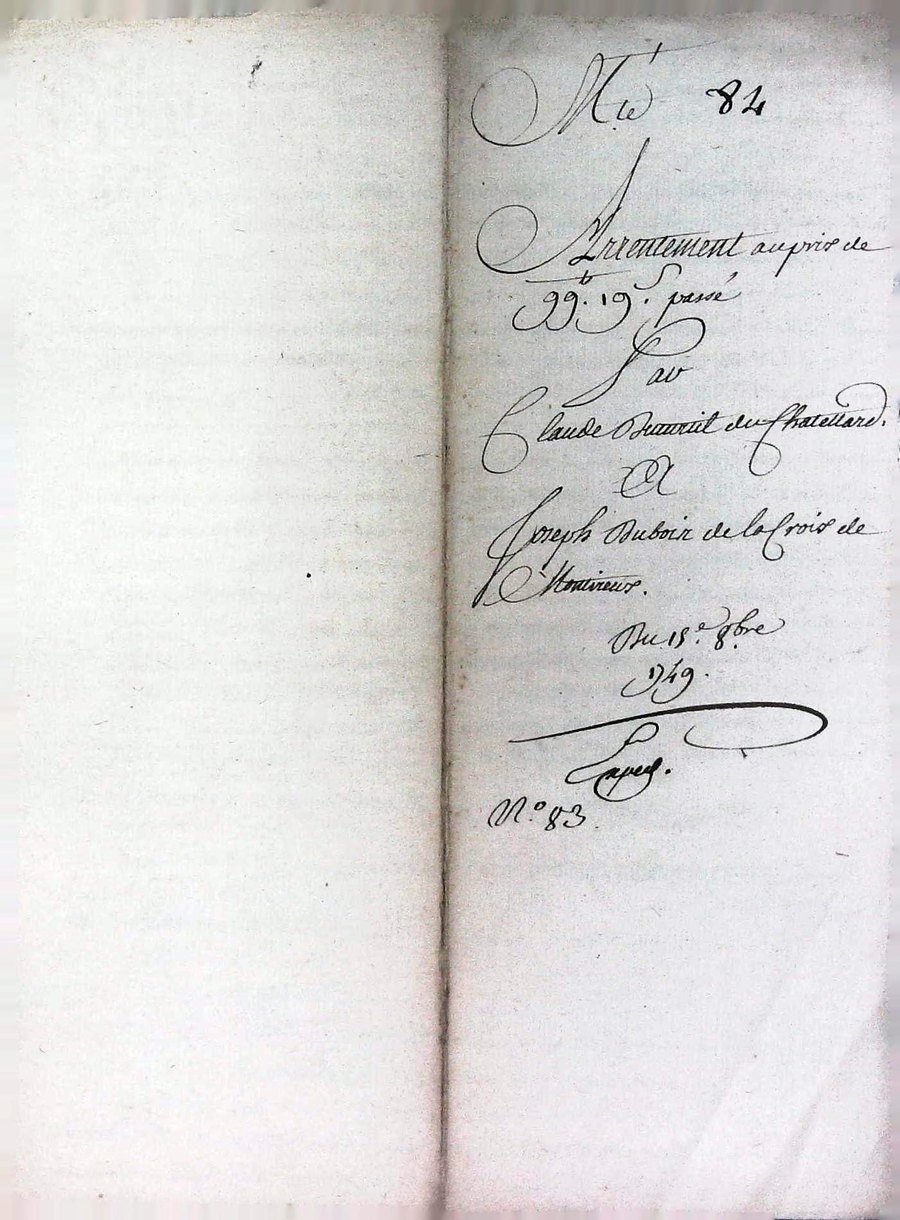 84
Arrentement au pris de
99ᵗᵗ. 19ˢ. passé
Par
Claude du Chatellard.
A
Joseph Dubois de la Crois de
Montvieux.
Du 15.ᵉ 8.ᵇʳᵉ
1749.
N.º 83.